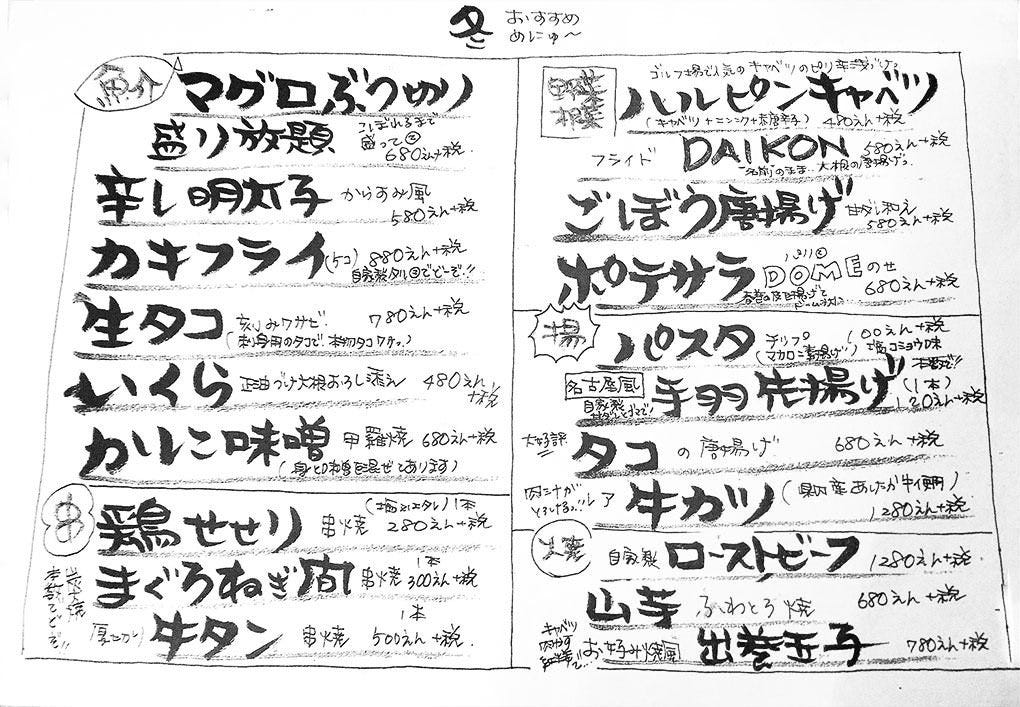 冬 おすすめ
めにゅ〜
魚介
マグロぶつ切り
盛り放題 こぼれるまで
盛って 680えん+税
辛し明太子 からすみ風
580えん+税
カキフライ (5コ) 880えん+税
自家製タルタルでどーぞ!!
生タコ 刻みワサビ 780えん+税
(刺身用のタコで、本物タコワサ。)
いくら 正油づけ大根おろし添え 480えん
+税
かにこ味噌 甲羅焼 680えん+税
(身と味噌を混ぜてあります)
串
鶏せせり 串焼 (塩又はタレ) 1本
280えん+税
まぐろねぎ間 串焼 1本
300えん+税
牛タン 串焼 1本
500えん+税
野菜
ゴルフ場で人気のキャベツのピリ辛浅づけ。
ハルピンキャベツ
(キャベツ+ニンニク+唐辛子) 480えん+税
フライド DAIKON 580えん+税
名前のまま、大根の唐揚げ。
ごぼう唐揚げ 甘ダレ和え
580えん+税
ポテサラ DOMEのせ
680えん+税
揚
パスタ チップ 100えん+税
(マカロニ素揚げ) 塩コショウ味
名古屋風 手羽先揚げ (1本)
自家製 120えん+税
大好評 タコの唐揚げ 680えん+税
レア 牛カツ (県内産あしたか牛使用)
1280えん+税
自家製 ローストビーフ 1280えん+税
山芋 ふわとろ焼 680えん+税
キャベツ
お好み焼風 出巻玉子 780えん+税